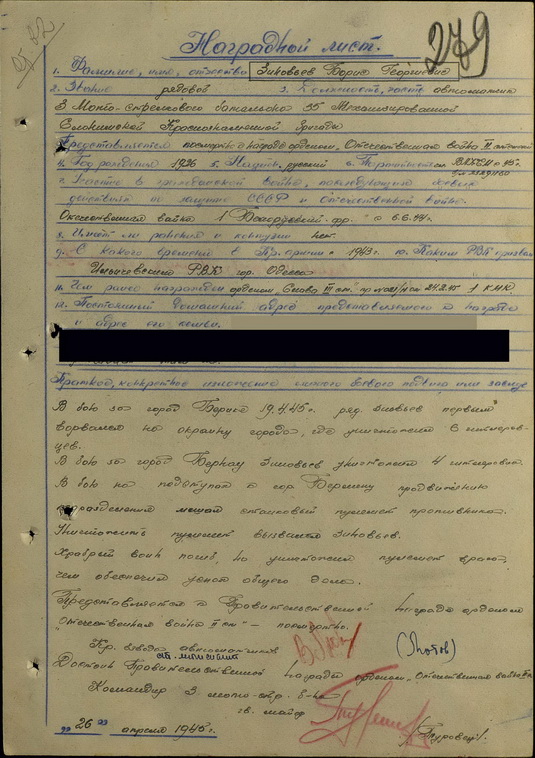 279
Наградной лист.
1. Фамилия, имя, отчество Зиновьев Борис Георгиевич
2. Звание рядовой 3. Должность, часть автоматчик
3 Мото-стрелкового батальона 35 Механизированной
Слонимской Краснознаменной Бригады
Представляется посмертно к награде орденом „Отечественная война II степени
4. Год рождения 1926 5. Национ. русский 6. Партийность ВЛКСМ с 45 г.
7. Участие в гражданской войне, последующих боевых
действиях по защите СССР и отечественной войне.
Отечественная война 1 Белорусский фр. с 6.6.44 г.
8. Имеет ли ранения и контузии нет.
9. С какого времени в Кр. армии с 1943 г. 10. Каким РВК призван
Ильичевским РВК гор. Одесса
11. Чем ранее награжден орденом „Слава III ст." 24.2.45 1 КМК
12. Постоянный домашний адрес представляемого к награде
и адрес его семьи.
Краткое, конкретное изложение личного боевого подвига или заслуг
В бою за город 19.4.45 г. ряд. Зиновьев первым
ворвался на окраину города, где уничтожил 6 гитлеров-
цев.
В бою за город Бернау Зиновьев уничтожил 4 гитлеровца.
В бою на подступах к гор. Берлину продвижению
подразделения мешал станковый пулемет противника.
Уничтожить пулемет вызвался Зиновьев.
Храбрый воин погиб, но уничтожил пулемет врага,
чем обеспечил успех общего дела.
Представляется к Правительственной награде орденом
„Отечественная война II ст" – посмертно.
Кр. взвода автоматчиков
(Попов)
Достоин Правительственной награды орденом „Отечественная война II ст
Командир 3 мото-стр. б-на
гв. майор
„26" апреля 1945 г.